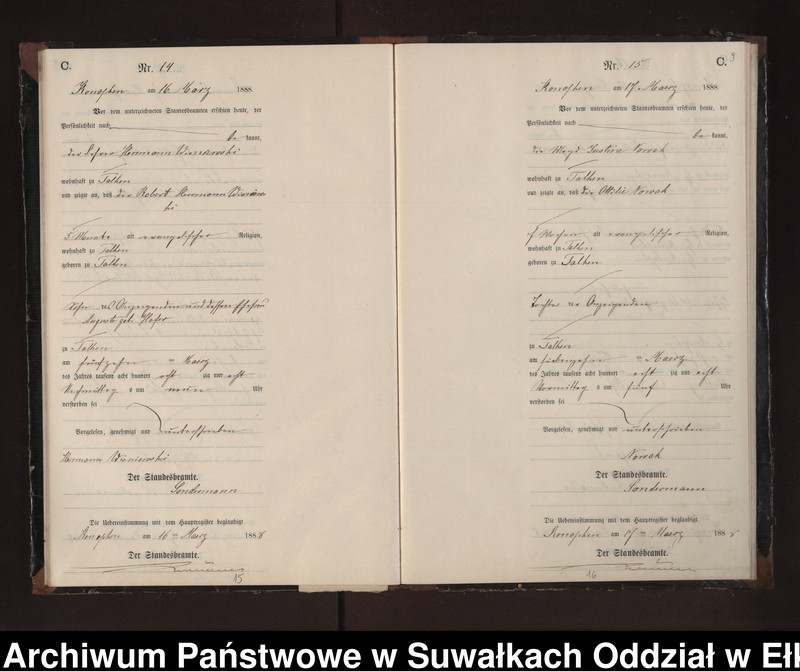 C.
Nr. 14
am 16 März 1888.
Vor dem unterzeichneten Standesbeamten erschien heute, der
Persönlichkeit nach
be kannt,
der Lehrer Hermann
wohnhaft zu Talken
und zeigte an, daß der Robert Hermann
ki
5 Monate alt evangelischer Religion,
wohnhaft zu Talken
geboren zu Talken
Sohn des Anzeigenden und dessen Ehefrau
Auguste geb.
zu Talken
am fünfzehn ten Maerz
des Jahres tausend acht hundert acht zig und acht
Nachmittag s um neun Uhr
verstorben sei
Vorgelesen, genehmigt und unterschrieben
Hermann
Der Standesbeamte.
Die Uebereinstimmung mit dem Hauptregister beglaubigt.
am 16 ten Maerz 1888
Der Standesbeamte.
15
Nr. 15
C. 3
am 17 Maerz 1888.
Vor dem unterzeichneten Standesbeamten erschien heute, der
Persönlichkeit nach
be kannt,
die Magd Justine Nowak
wohnhaft zu Talken
und zeigte an, daß die Ottilie Nowak
Wochen alt evangelischer Religion,
wohnhaft zu Talken
geboren zu Talken
Tochter der Anzeigenden
zu Talken
am siebenzehn ten Maerz
des Jahres tausend acht hundert acht zig und acht
Vormittag s um fünf Uhr
verstorben sei
Vorgelesen, genehmigt und unterschrieben
Nowak
Der Standesbeamte.
Die Uebereinstimmung mit dem Hauptregister beglaubigt.
am 17 ten Maerz 1888
Der Standesbeamte.
16
Archiwum Państwowe w Suwałkach Oddział w Eł